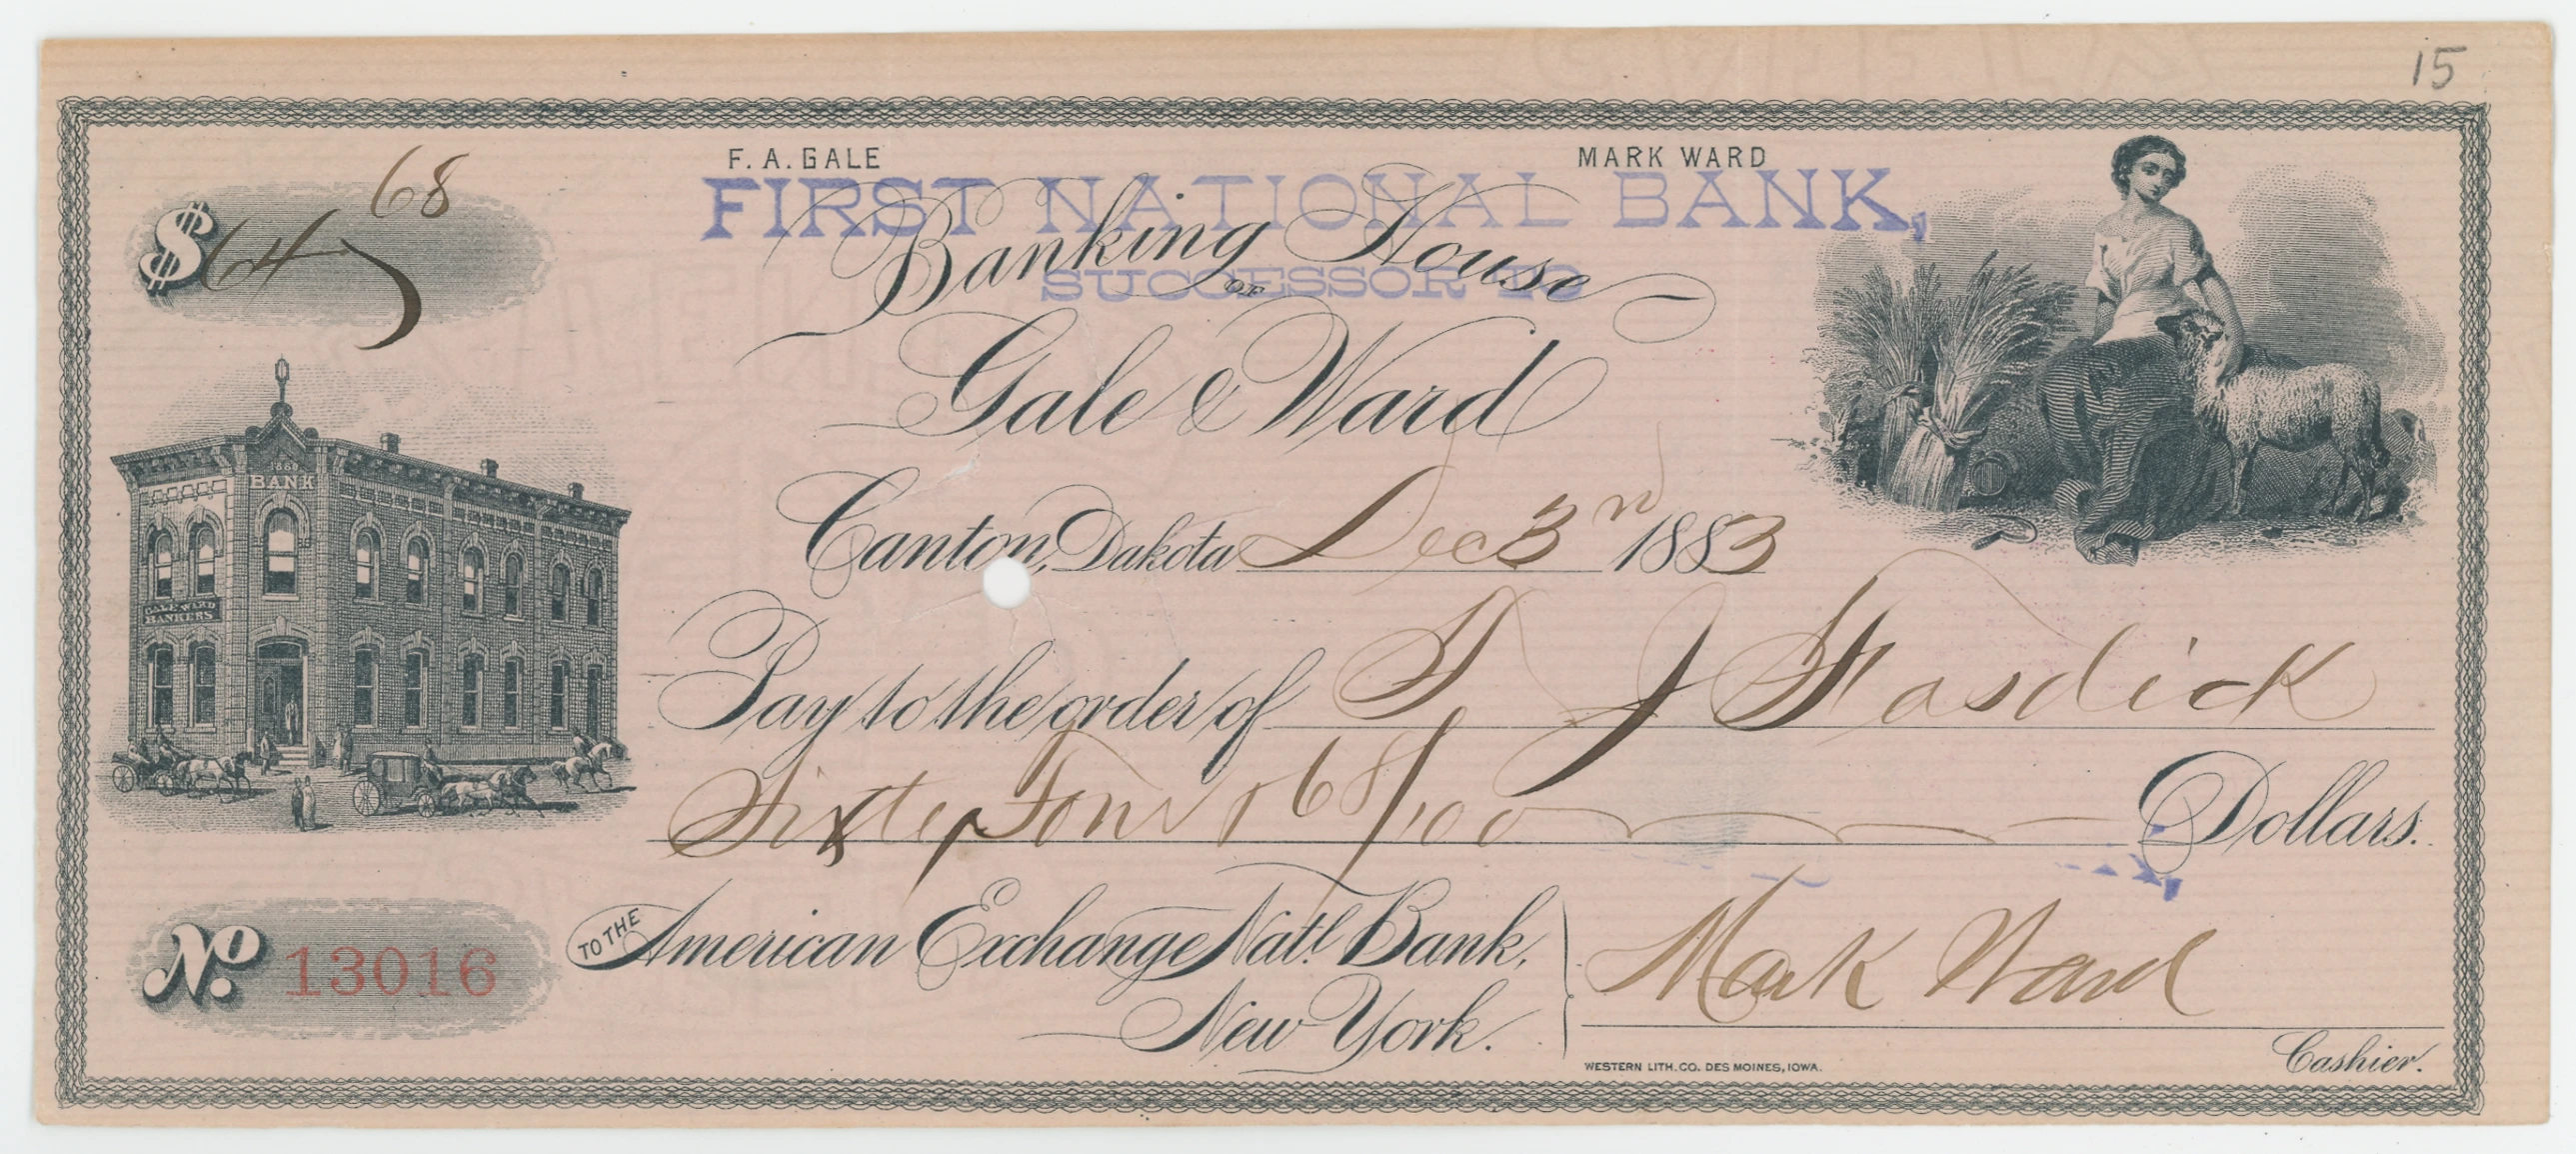 15
F. A. GALE MARK WARD
FIRST NATIONAL BANK,
$64 68
Banking House
OF
SUCCESSOR TO
Gale & Ward
1880
BANK
GALE WARD
BANKERS
Canton, Dakota Dec 3rd 1883
Pay to the order of T J Fasdick
Sixty Four & 68/100 Dollars.
No. 13016
TO THE American Exchange Nat'l. Bank,
New York.
Mark Ward
Cashier.
WESTERN LITH. CO. DES MOINES, IOWA.